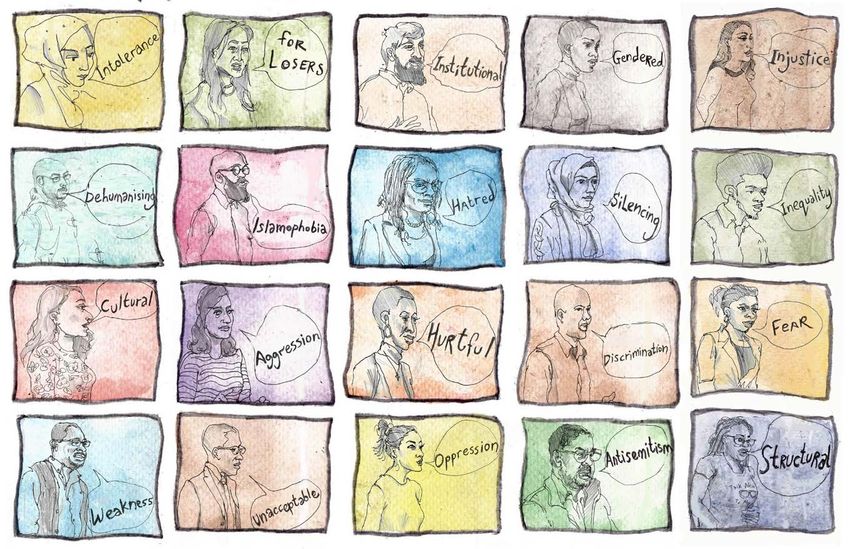 Intolerance
FOR
LOSERS
Institutional
Gendered
Injustice
Dehumanising
Islamophobia
Hatred
Silencing
Inequality
Cultural
Aggression
Hurtful
Discrimination
FEAR
Weakness
Unacceptable
Oppression
Antisemitism
Structural